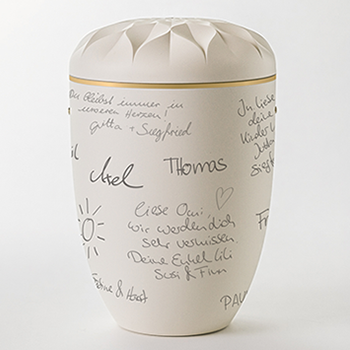 Du bleibst immer in
unseren Herzen!
Gitta + Siegfried
In Liebe
deine
Kinder
Axel
THOMAS
Liese Omi,
wir werden dich
sehr vermissen.
Deine Enkel Lili
Susi & Finn
& Horst
PAU